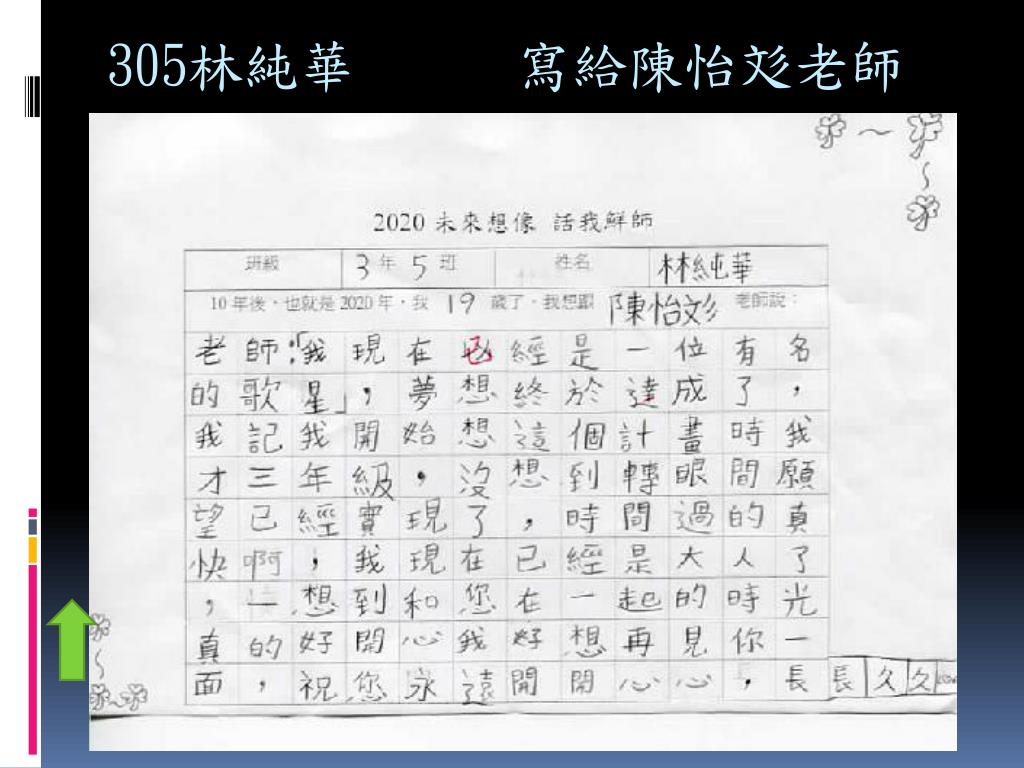 305林純華 寫給陳怡彣老師
2020 未來想像 話我鮮師
班級 3年5班 姓名 林純華
10年後，也就是2020年，我19歲了，我想跟陳怡彣老師說：
老師：「我現在已經是一位有名
的歌星」，夢想終於達成了，
我記我開始想這個計畫時我
才三年級，沒想到轉眼間願
望已經實現了，時間過的真
快啊，我現在已經是大人了
，一想到和您在一起的時光
真的好開心我好想再見你一
面，祝您永遠開開心心，長長久久